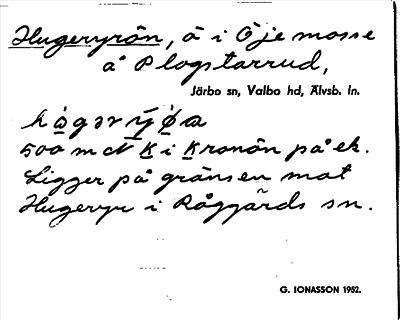 Hugeryrön, ä i Öje mosse
å Plogstarrud,
Järbo sn, Valbo hd, Älvsb. ln.
500 m N K i Kronön på ek.
Ligger på gränsen mot
Hugeryr i Råggärds sn.
G. IONASSON 1952.